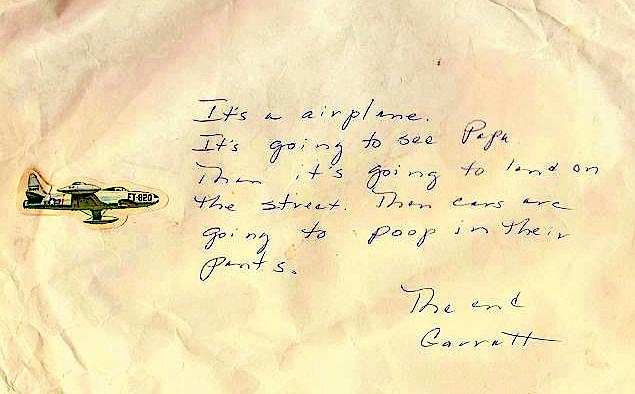 It's a airplane.
It's going to see Papa.
Then it's going to land on
the street. Then cars are
going to poop in their
pants.
The end
Garrett
FT-820